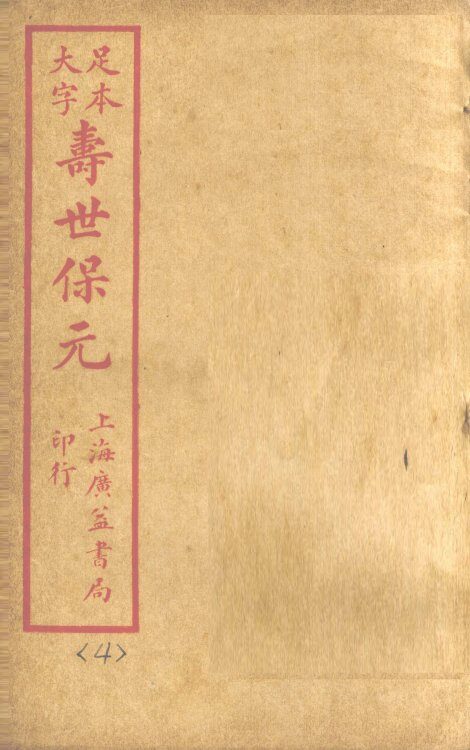 足本
大字
壽世保元
上海廣益書局
印行
<4>